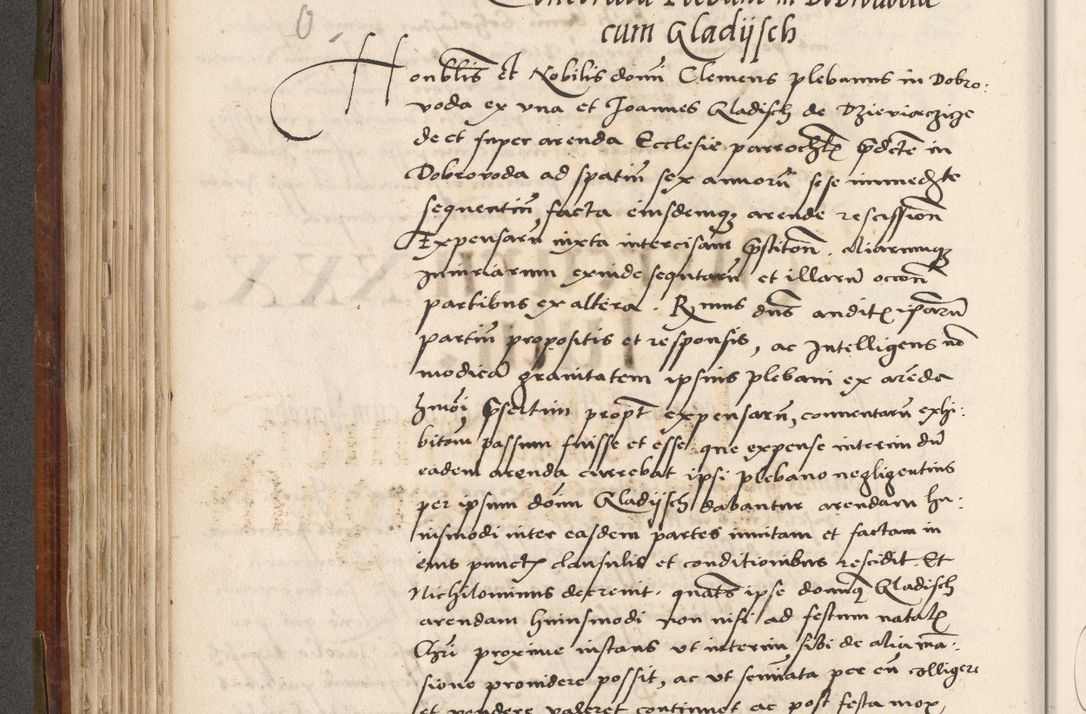 Concordata Plebani in Dobrovoda
cum Gladijsch
Honbles et Nobilis domi Clemens plebanus in Dobro:
voda ex una et Joannes Gladisch de Dzieviaczicze
de et super arenda Ecclesie parrochls pdcte in
Dobrovoda ad spatiu sex annoru sese immedte
sequentiu, facta eiusdemq arende rescission
Expensaru iuxta intercisam pstiton. aliarumq
Iniuriarum exinde sequtaru et illaru occon
partibus ex altera. Rmus dns auditis ipsaru
partiu propositis et responsis, ac Intelligens no
modica grauitatem ipsius plebani ex areda
hmoi psertim propt expensaru, conuentaru exhi:
bitom passum fuisse et esse, que expense interim du
eadem arenda currebat ipsi plebano negligentius
per ipsum domi Gladijsch dabantur arendam hu:
iusmodi inter easdem partes initam et factam in
eius punctis clausulis et conditionibus rescidit. Et
Nichilominus decreuit. quats ipse domiq Gladisch
arendam huiusmodi non nisi ad festum natals
Chri proxime instans ut interim sibi de alia ma:
sione prouidere possit, ac ut seminata per eu colligere
et vendere valeret continuet ac post festa mox,